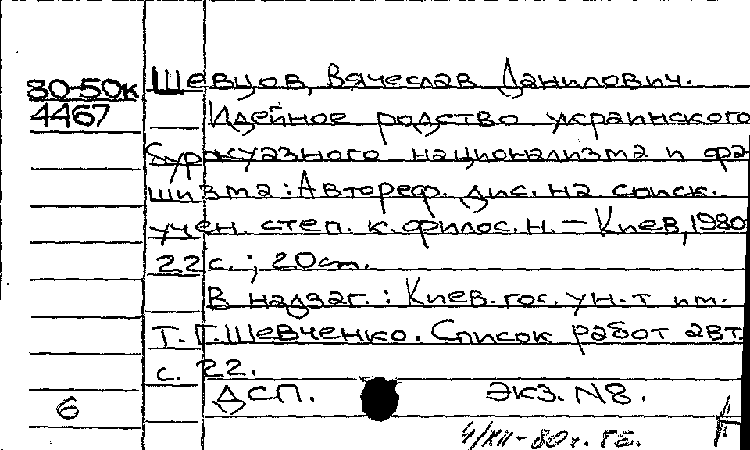 80-50к Шевцов, Вячеслав Данилович.
4467 Идейное родство украинского
буржуазного национализма и фа-
шизма: Автореф. дис. на соиск.
учен. степ. к. филос. н. — Киев, 1980
22 с.; 20 см.
В надзаг.: Киев. гос. ун-т им.
Т. Г. Шевченко. Список работ авт.
с. 22.
6 ДСП. Экз. N8.